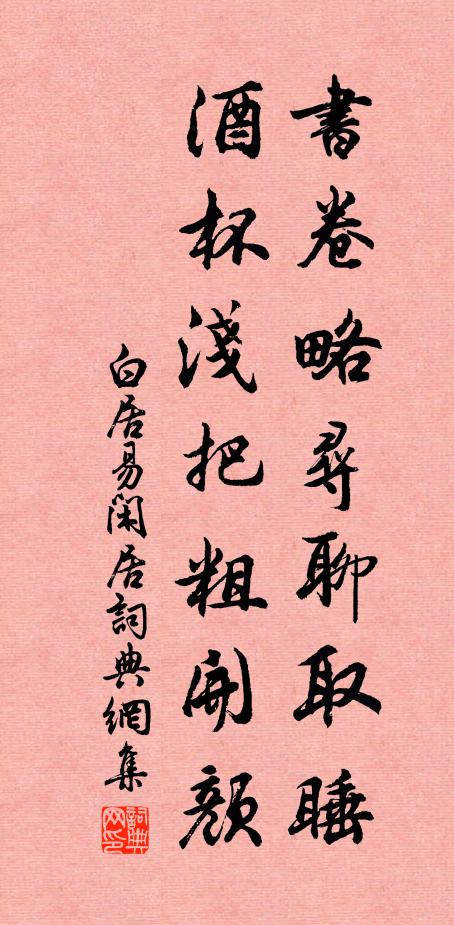 書卷略尋聊取睡
酒杯淺把粗開顏
白居易閑居詞典網集
詞典网印